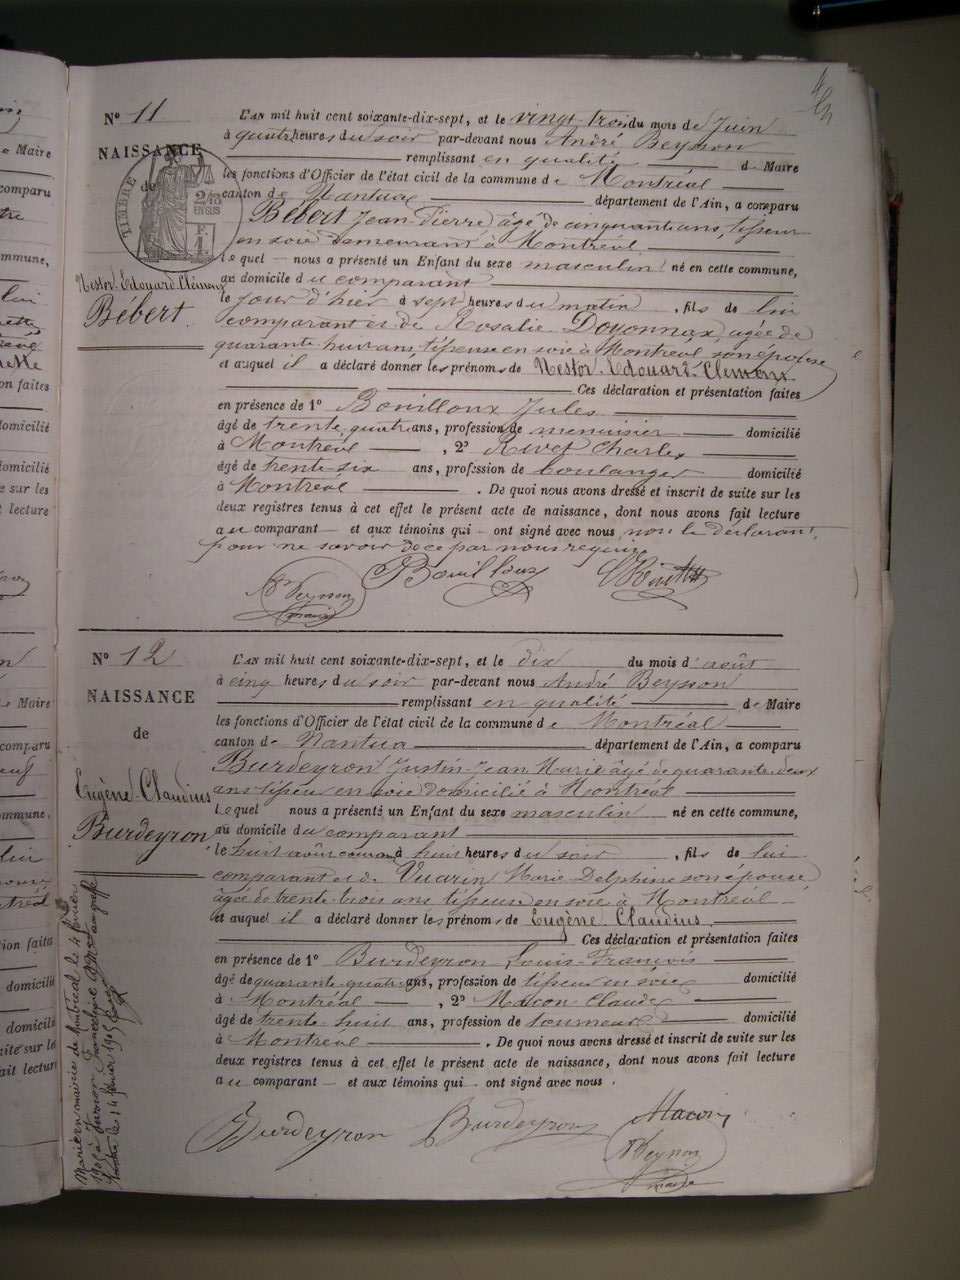 N° 11
NAISSANCE
de
TIMBRE
2/10 EN SUS
Nestor Edouard Clément
Bébert
L'AN mil huit cent soixante-dix-sept, et le vingt trois du mois de Juin
à quatre heures du soir par-devant nous André Beysson
remplissant en qualité de Maire
les fonctions d'Officier de l'état civil de la commune de Montréal
canton de Nantua département de l'Ain, a comparu
Bébert Jean-Pierre âgé de cinquante ans, tisseur
en soie demeurant à Montréal
lequel nous a présenté un Enfant du sexe masculin né en cette commune,
au domicile du comparant
le jour d'hier à sept heures du matin, fils de lui
comparant et de Rosalie Doyonnax, agée de
quarante huit ans, tisseuse en soie à Montréal son épouse
et auquel il a déclaré donner les prénoms de Nestor Edouard-Clément
Ces déclaration et présentation faites
en présence de 1° Bouilloux Jules
âgé de trente quatre ans, profession de menuisier domicilié
à Montréal, 2° Rivet Charles
âgé de trente-six ans, profession de boulanger domicilié
à Montréal. De quoi nous avons dressé et inscrit de suite sur les
deux registres tenus à cet effet le présent acte de naissance, dont nous avons fait lecture
au comparant et aux témoins qui ont signé avec nous non le déclarant
pour ne savoir de ce par nous requis
Bouilloux
Beysson
maire
N° 12
NAISSANCE
de
Eugène-Claudius
Burdeyron
L'AN mil huit cent soixante-dix-sept, et le dix du mois d'août
à cinq heures du soir par-devant nous André Beysson
remplissant en qualité de Maire
les fonctions d'Officier de l'état civil de la commune de Montréal
canton de Nantua département de l'Ain, a comparu
Burdeyron Justin-Jean Marie âgé de quarante-deux
ans tisseur en soie domicilié à Montréal
lequel nous a présenté un Enfant du sexe masculin né en cette commune,
au domicile du comparant
le huit août courant à huit heures du soir, fils de lui
comparant et de Vuarin Marie Delphine son épouse
âgée de trente-trois ans tisseuse en soie à Montréal
et auquel il a déclaré donner les prénoms de Eugène Claudius
Ces déclaration et présentation faites
en présence de 1° Burdeyron Louis-François
âgé de quarante-quatre ans, profession de tisseur en soie domicilié
à Montréal, 2° Macon Claude
âgé de trente-huit ans, profession de tourneur domicilié
à Montréal. De quoi nous avons dressé et inscrit de suite sur les
deux registres tenus à cet effet le présent acte de naissance, dont nous avons fait lecture
au comparant et aux témoins qui ont signé avec nous.
Burdeyron Burdeyron Macon
Beysson
maire
mairie de Montréal le 4 février
1905 à
le 14 février 1905